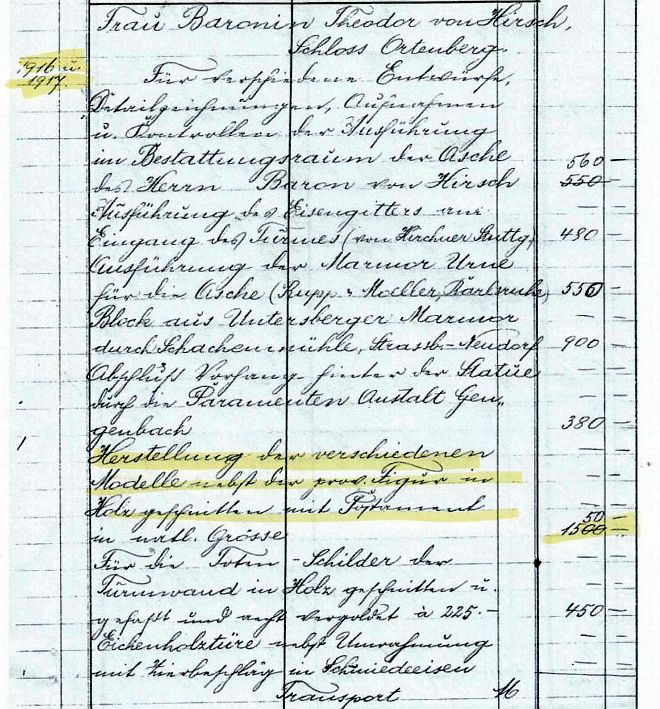 Frau Baronin Theodor von Hirsch,
Schloss Ortenberg.
1916 u. 1917.
Für verschiedene Entwürfe,
Detailzeichnungen, Aufnahmen
u. Kontrollen der Ausführung
im Bestattungsraum der Asche 560 –
des Herrn Baron von Hirsch 550 –
Ausführung des Eisengitters am
Eingang des Turmes (von Kirchner Stuttg.) 480 –
Ausführung der Marmor Urne
für die Asche (Rupp & Moeller, Karlsruhe) 550 –
Block aus Untersberger Marmor
durch Schachenmühle, Strassb.-Neudorf 900 –
Abschluß Vorhang hinter der Statue
durch die Paramenten Anstalt Gen„
genbach 380 –
Herstellung der verschiedenen
Modelle nebst der prov. Figur in
Holz geschnitten mit Postament 50
in natl. Grösse 1500 –
Für die Toten-Schilder der
Turmwand in Holz geschnitten u.
gefaßt und aecht vergoldet à 225.- 450 –
Eichenholztüre nebst Umrahmung
mit Zierbeschläg in Schmiedeeisen
Transport M